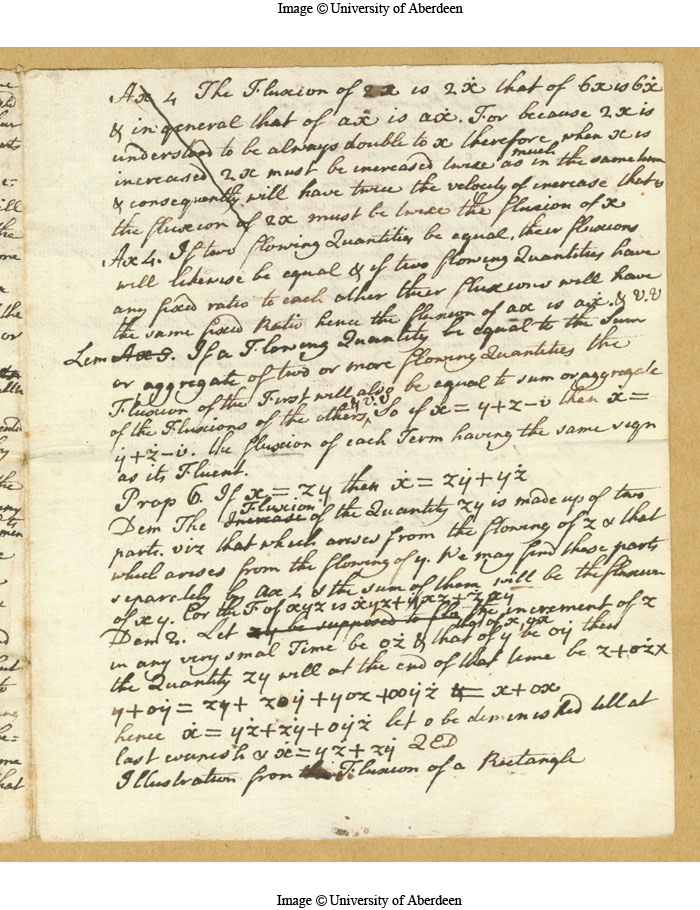 Image © University of Aberdeen
Ax 4 The Fluxion of 2x is 2ẋ that of 6x is 6ẋ
& in general that of ax is aẋ. For because 2x is
understood to be always double to x therefore when x is
increased 2x must be increased twice as much in the same time
& consequently will have twice the velocity of increase that is
the fluxion of 2x must be twice the fluxion of x
Ax 4. If two flowing Quantities be equal, their fluxions
will likewise be equal & if two flowing Quantities have
any fixed ratio to each other their fluxions will have
the same fixed Ratio hence the fluxion of ax is aẋ. & v.v
Lem Ax 5. If a Flowing Quantity be equal to the Sum
or aggregate of two or more flowing Quantities the
Fluxion of the First will also be equal to sum or aggregate
of the Fluxions of the others, & v.v. So if x = y+z-v then ẋ =
ẏ+ż-v̇. the fluxion of each Term having the same sign
as its Fluent.
Prop 6. If x = zy then ẋ = zẏ + yż
Dem The Increase Fluxion of the Quantity zy is made up of two
parts. viz that which arises from the flowing of z & that
which arises from the flowing of y. We may find these parts
separately by Ax 4 & the sum of them will be the fluxion
of xy. Cor the F of xyz is ẋyz+ẏxz+żxy
Dem 2. Let xy be supposed to the increment of z
in any very smal Time be oż & that of y be oẏ then
the Quantity zy will at the end of that time be z+oż x
y+oẏ = zy + zoẏ + yoż + ooẏż = x+oẋ
hence ẋ = yż+zẏ+oẏż let o be deminished till at
last evanish & ẋ = yż + zẏ QED
Illustration from the Fluxion of a Rectangle
Image © University of Aberdeen